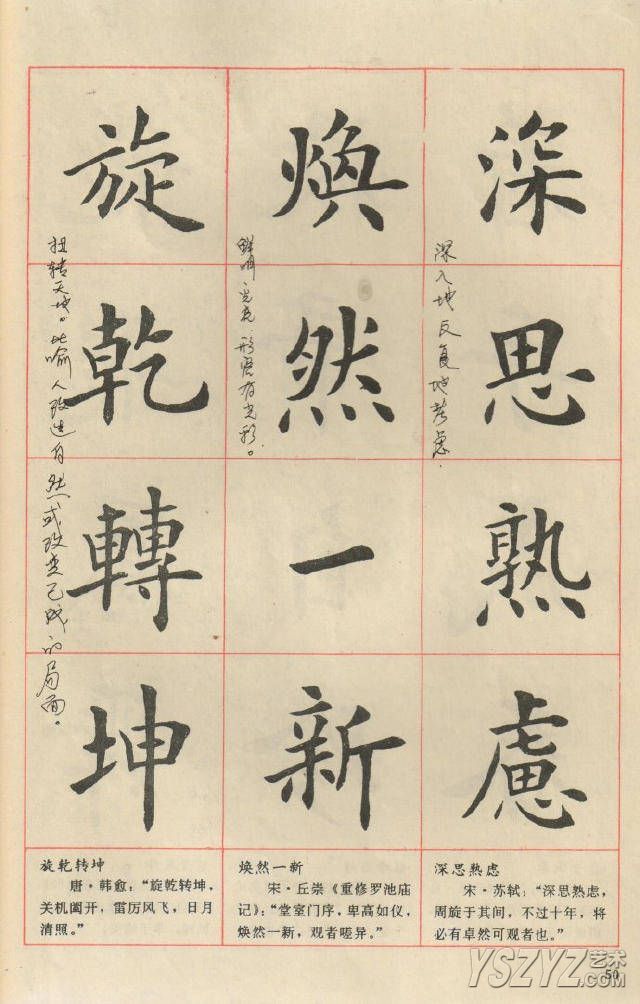 深思熟慮
深入地反复地考虑.
煥然一新
形容有光彩。
旋乾轉坤
扭转天地。比喻人改造自然或改变已成的局面。
旋乾转坤
唐·韩愈:“旋乾转坤,
关机阖开,雷厉风飞,日月
清照。”
焕然一新
宋·丘崇《重修罗池庙
记》:“堂室门序,卑高如仪,
焕然一新,观者嗟异。”
深思熟虑
宋·苏轼:“深思熟虑,
周旋于其间,不过十年,将
必有卓然可观者也。”
50
YSZYZ艺术
.COM